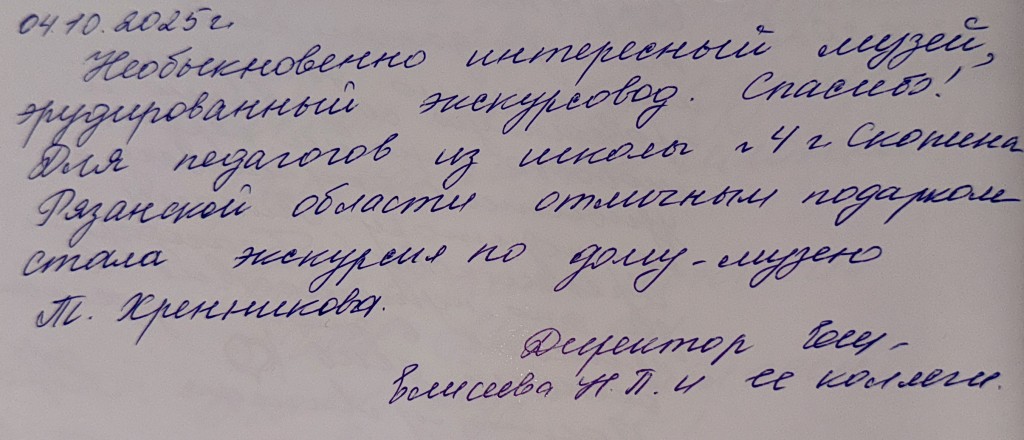 04.10.2025г.
Необыкновенно интересный музей,
эрудированный экскурсовод. Спасибо!
Для педагогов из школы 4 г Скопина
Рязанской области отличным подарком
стала экскурсия по дому-музею
Т. Хренникова.
Директор
Елисеева Н.П. и ее коллеги.